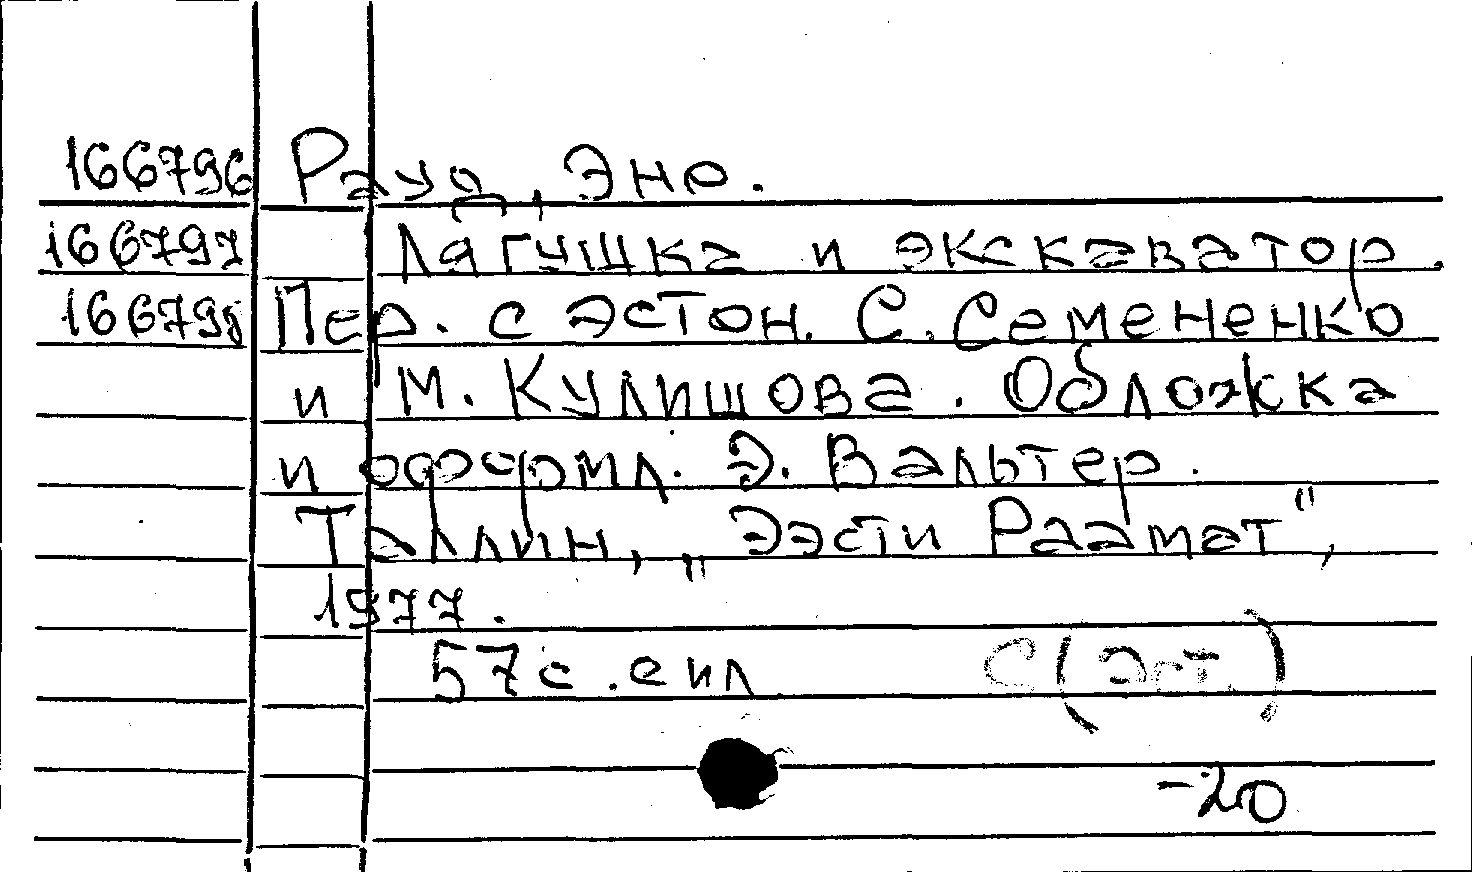 166796 Рауд, Эно.
166797 Лягушка и экскаватор.
166798 Пер. с эстон. С. Семененко
и М. Кулишова. Обложка
и оформл. Э. Вальтер.
Таллин, „Ээсти Раамат",
1977.
57 с. с ил С (Эст.)
-20